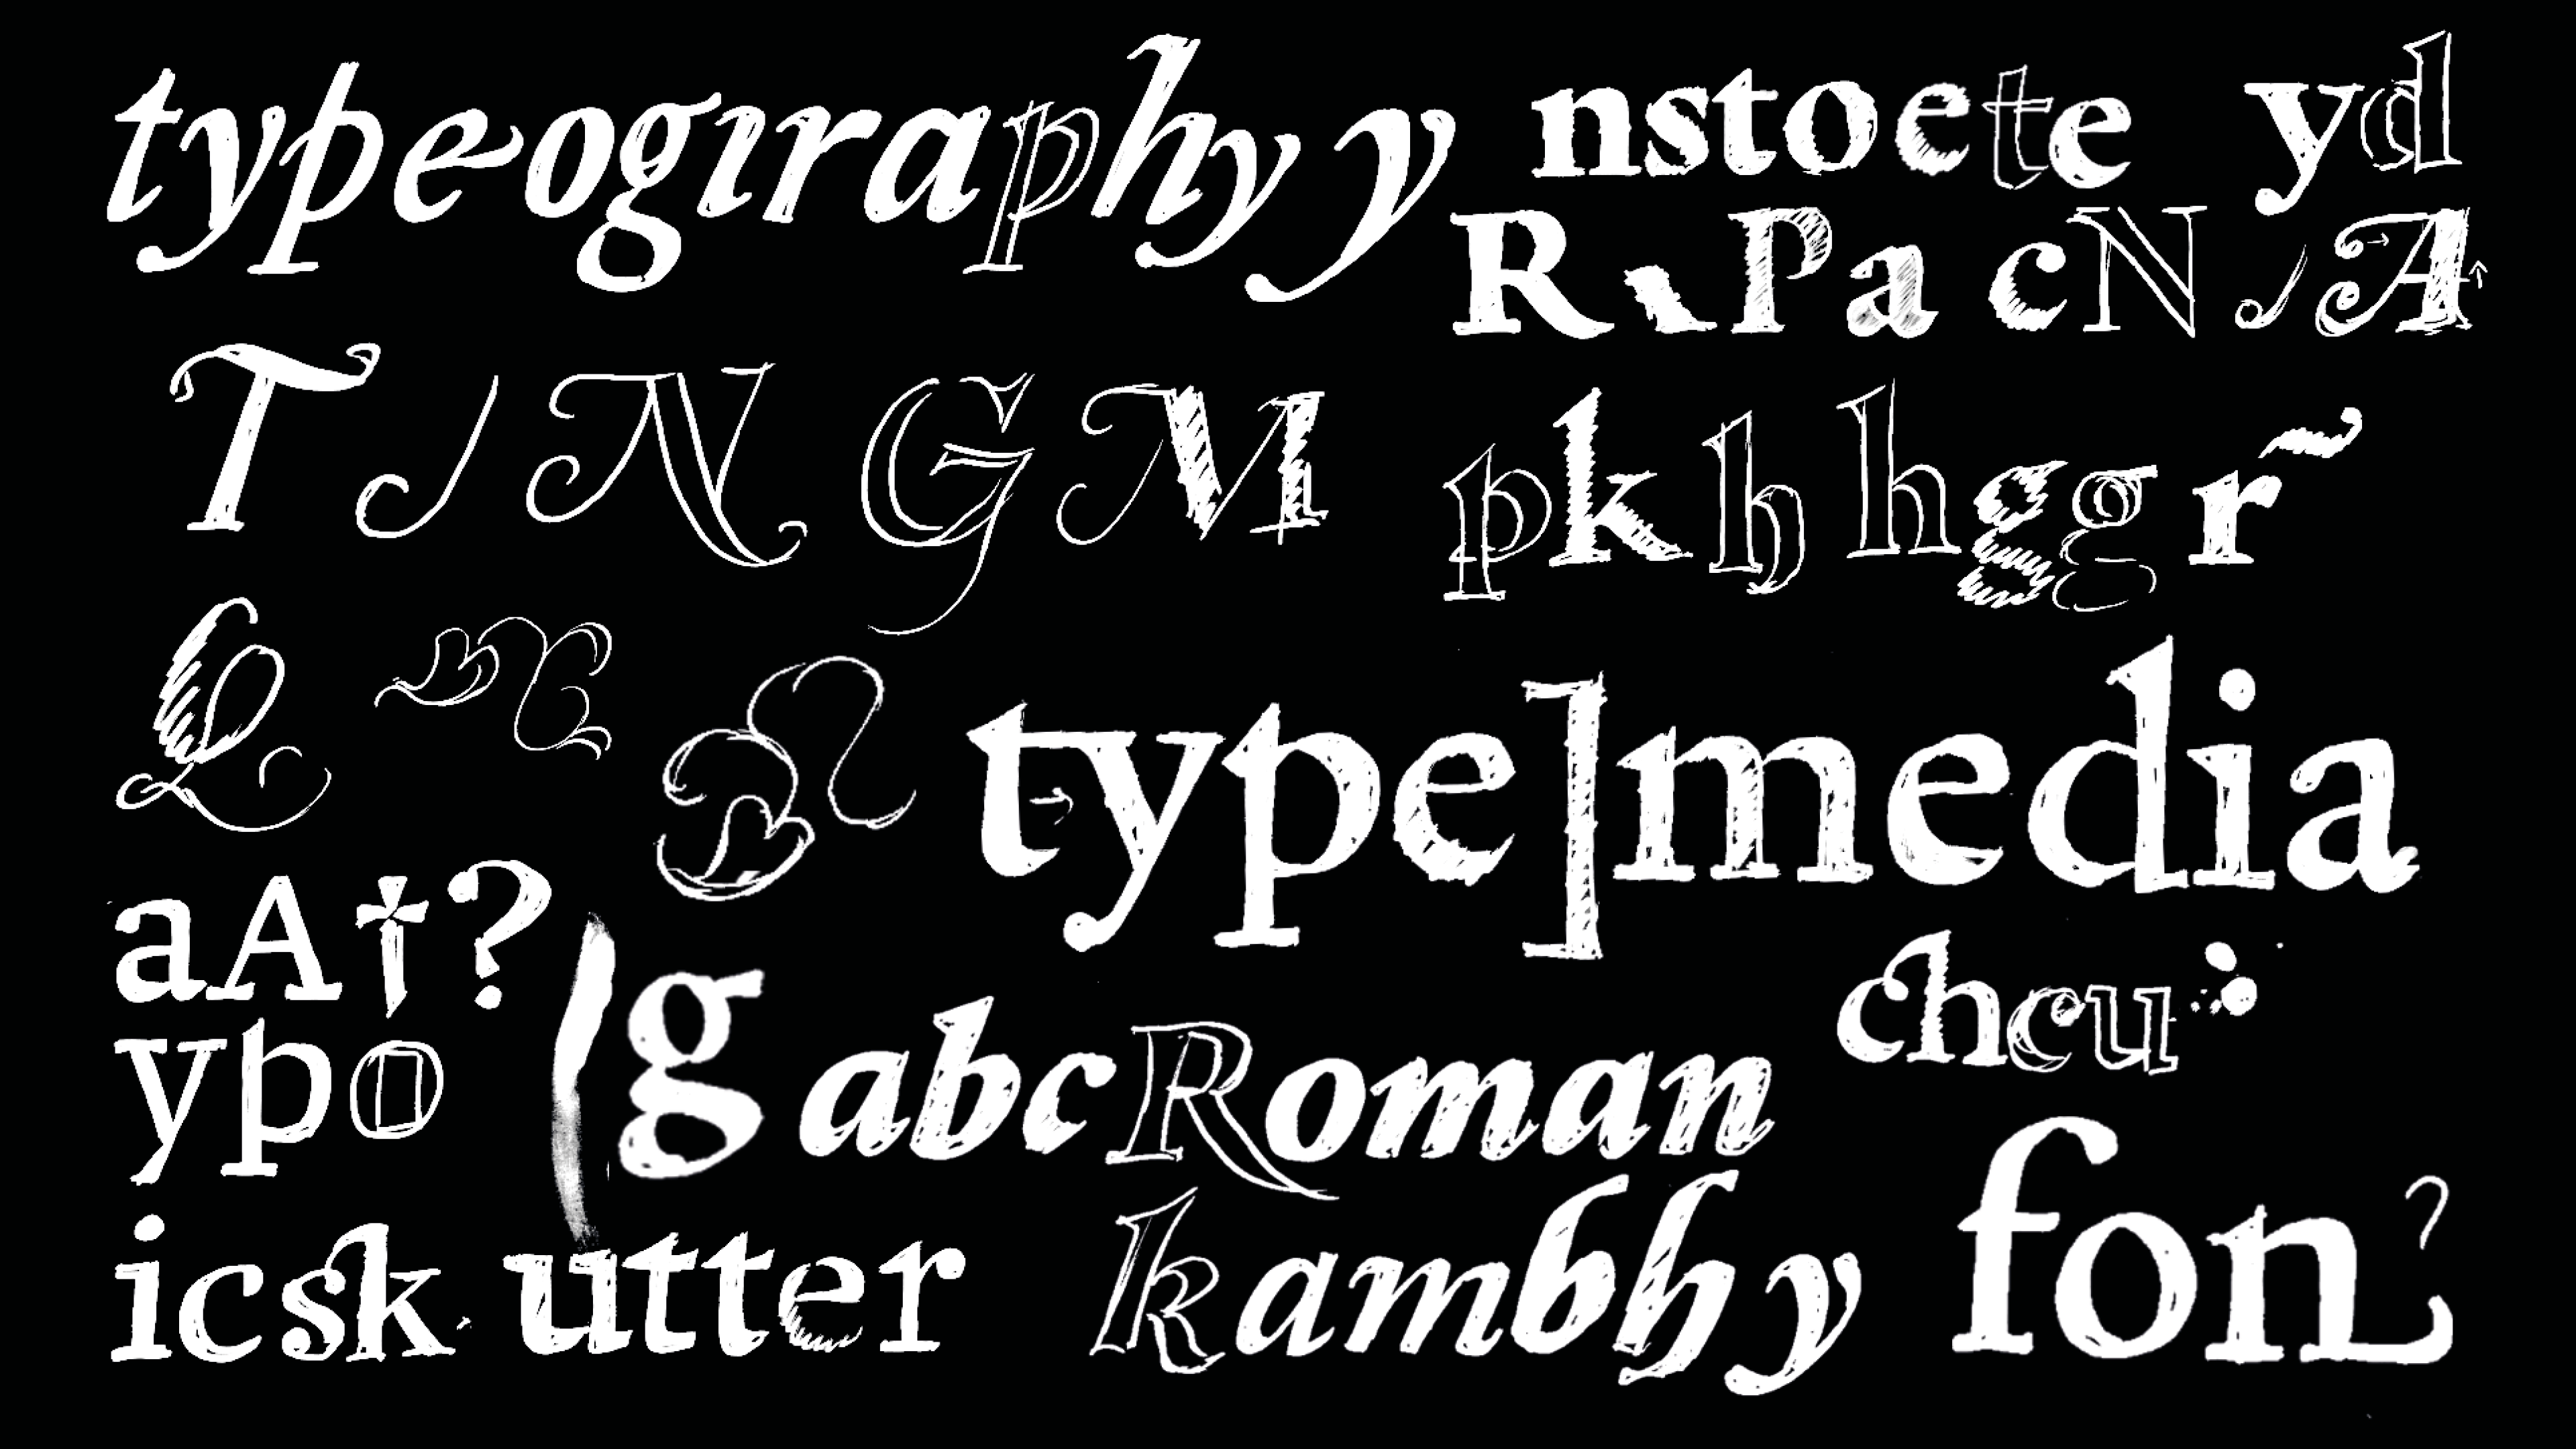 typeogıraphyy nstoete yd
R Pa cN A
T J N G M pk h h g g r
L
type]media
aA†?
chcu
ypo g abcRoman
icsk utter kambhy fon